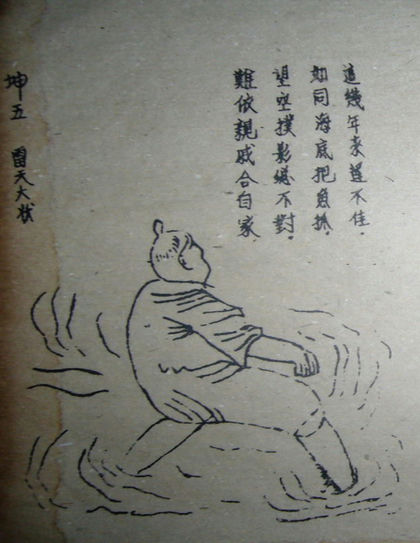 這幾年來運不佳.
如同海底把魚抓.
望空撲影總不對.
難依親戚合自家
坤五 雷天大状